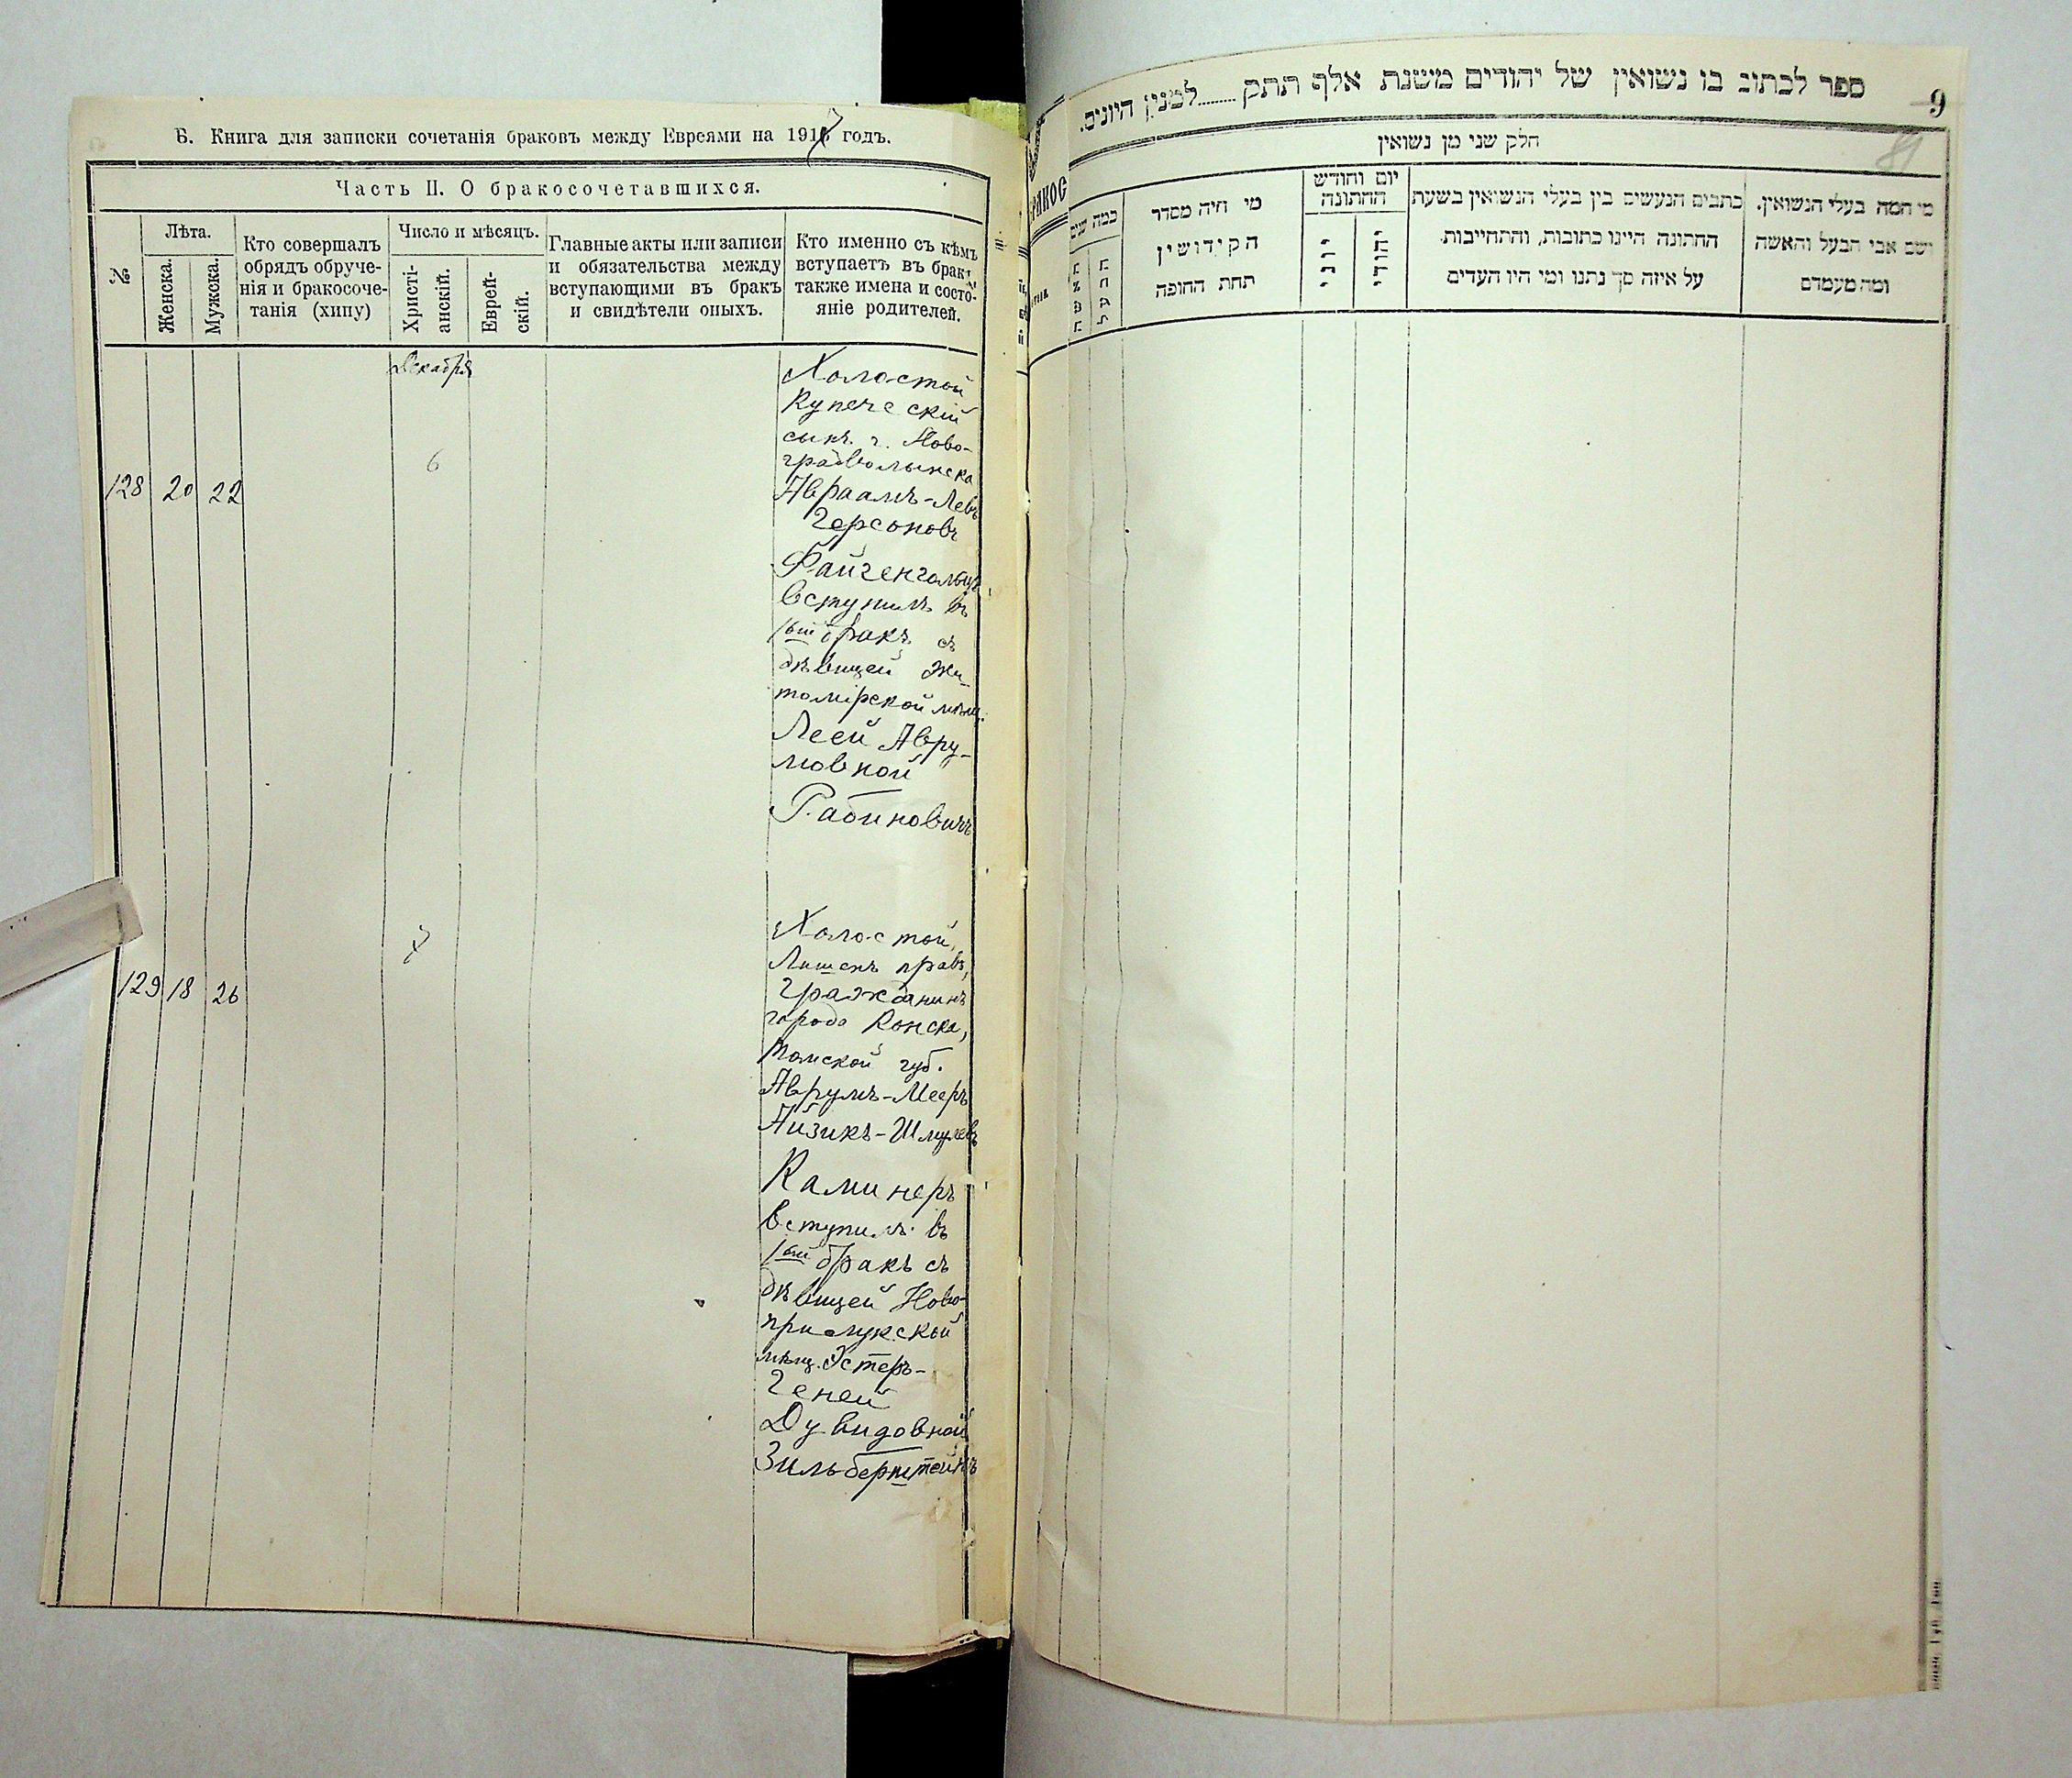 Б. Книга для записки сочетанія браковъ между Евреями на 1917 годъ.
Часть II. О бракосочетавшихся.
№
Лѣта.
Женска.
Мужска.
Кто совершалъ
обрядъ обруче-
нія и бракосоче-
танія (хипу)
Число и мѣсяцъ.
Христі-
анскій.
Еврей-
скій.
Главные акты или записи
и обязательства между
вступающими въ бракъ
и свидѣтели оныхъ.
Кто именно съ кѣмъ
вступаетъ въ бракъ,
также имена и состо-
яніе родителей.
Декабря
128 20 22
6
Холостой
Купеческій
сынъ г. Ново-
градволынска
Авраамъ-Левъ
Герсоновъ
Файгенгольцъ
вступилъ въ
1ый бракъ съ
дѣвицей Жи-
томірской мѣщ.
Леей Авру-
мовной
Рабиновичъ
129 18 26
Холостой,
Лишенъ правъ,
гражданинъ
города
Томской губ.
Аврумъ-Мееръ
Айзикъ-Шмулевъ
Каминеръ
вступилъ въ
1ый бракъ съ
дѣвицей Ново-
прилукской
мѣщ. Эстеръ-
Геней
Дувидовной
Зильберштейнъ
ספר לכתוב בו נשואין של יהודים משנת אלף תתק........למנין היונים.
9
81
חלק שני מן נשואין
מי המה בעלי הנשואין.
ושם אבי הבעל והאשה
ומה מעמדם
כתבים הנעשים בין בעלי הנשואין בשעת
החתונה היינו כתובות, והתחייבות.
על איזה סך נתנו ומי היו העדים
יום וחודש
החתונה
יהודי
יוני
מי היה מסדר
הקידושין
תחת החופה
כמה שנים
הבעל
האשה